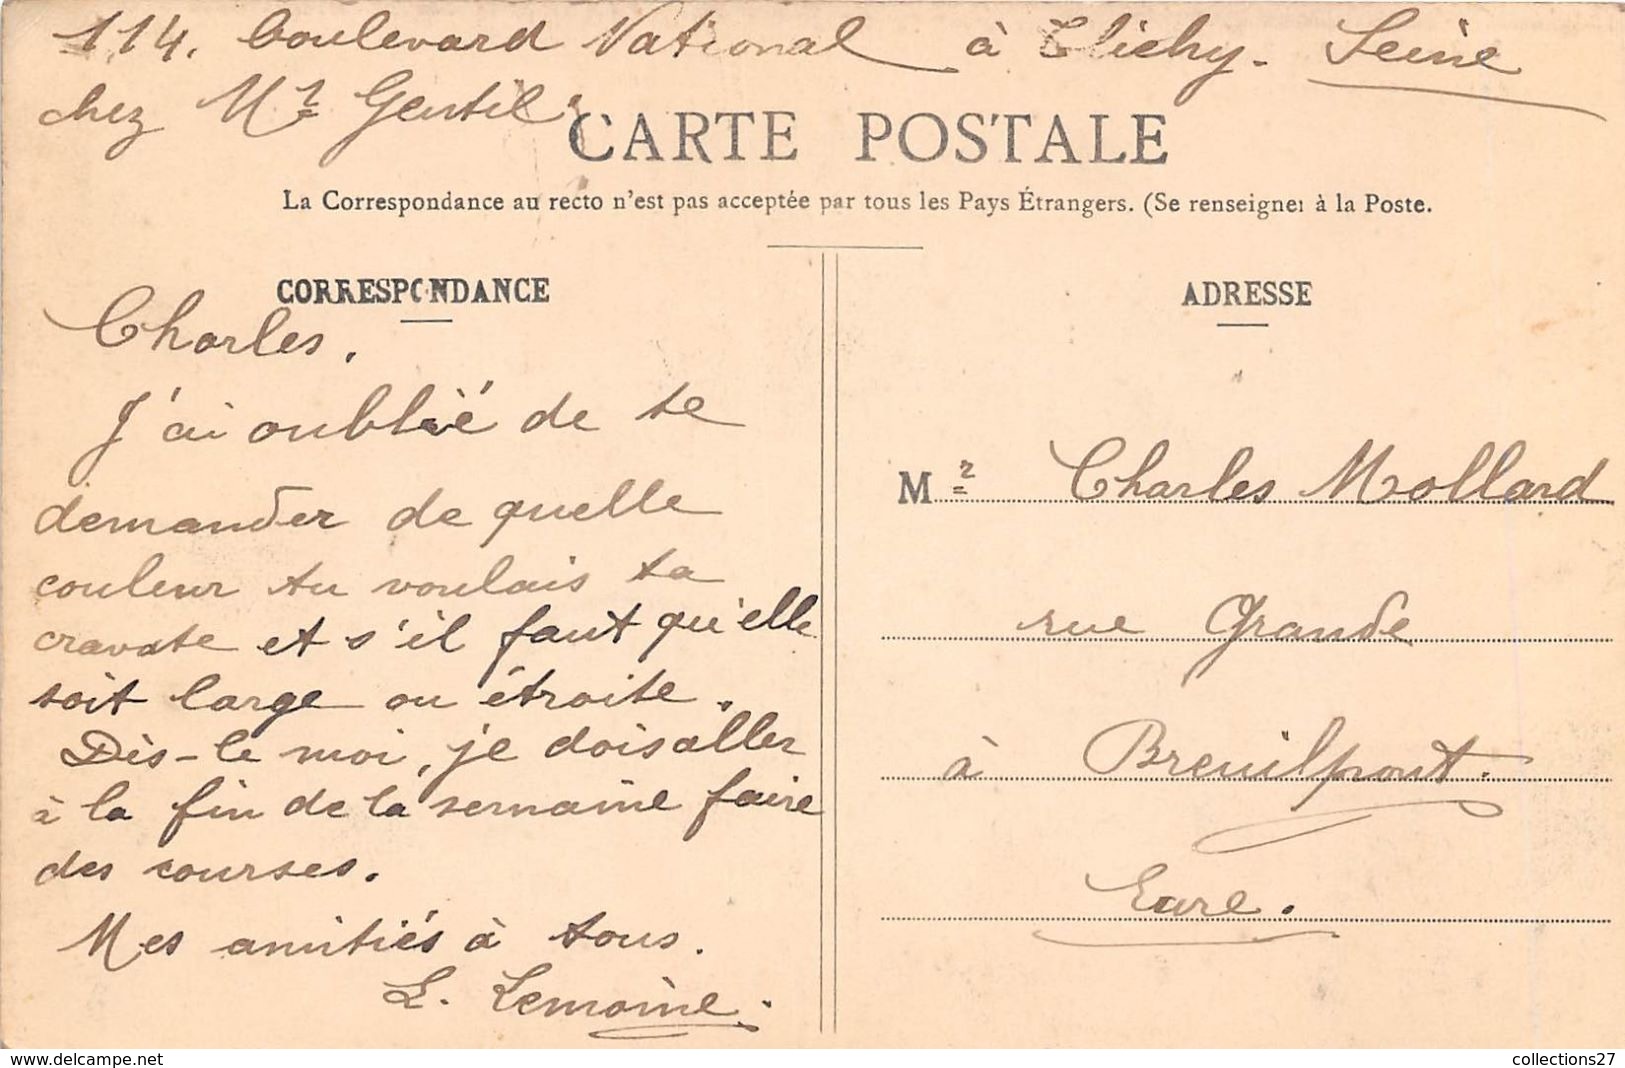 114. boulevard National à Clichy. Seine
chez Mr Gentil
CARTE POSTALE
La Correspondance au recto n'est pas acceptée par tous les Pays Étrangers. (Se renseigner à la Poste.
CORRESPONDANCE
Charles.
J'ai oublié de te
demander de quelle
couleur tu voulais ta
cravate et s'il faut qu'elle
soit large ou étroite.
Dis-le moi, je dois aller
à la fin de la semaine faire
des courses.
Mes amitiés à tous.
L. Lemoine.
ADRESSE
Mr Charles Mollard
rue Grande
à Breuilpont.
Eure.
collections27